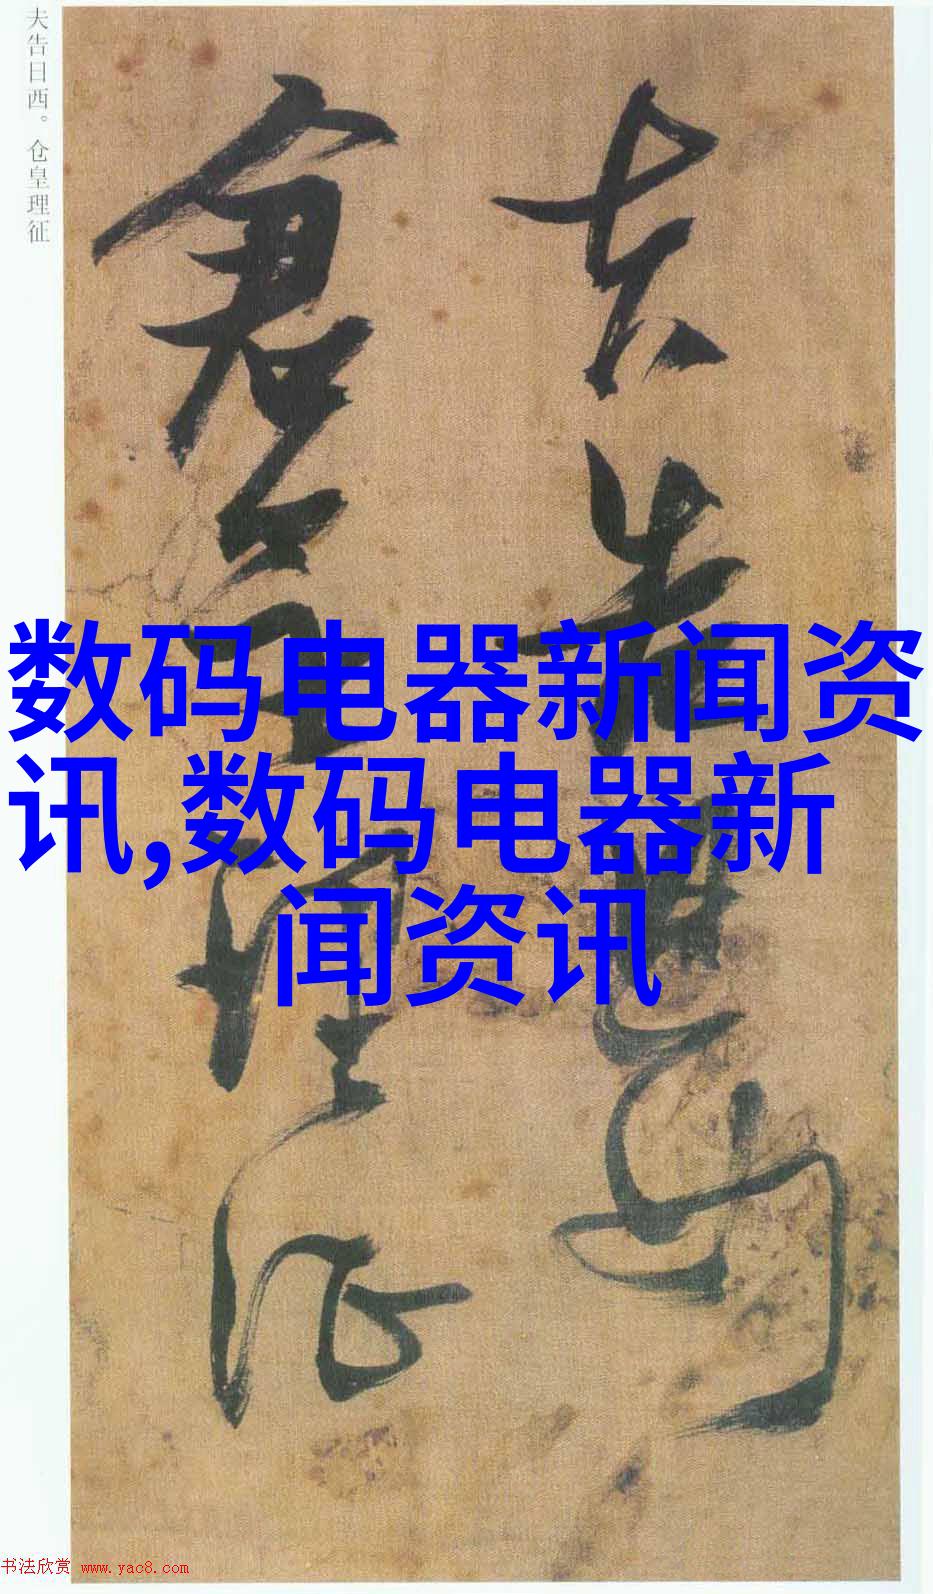 夫告日西。仓皇理征
夫告日西
倉皇理征
数码电器新闻资
讯,数码电器新
闻资讯
书法欣赏 www.yac8.com